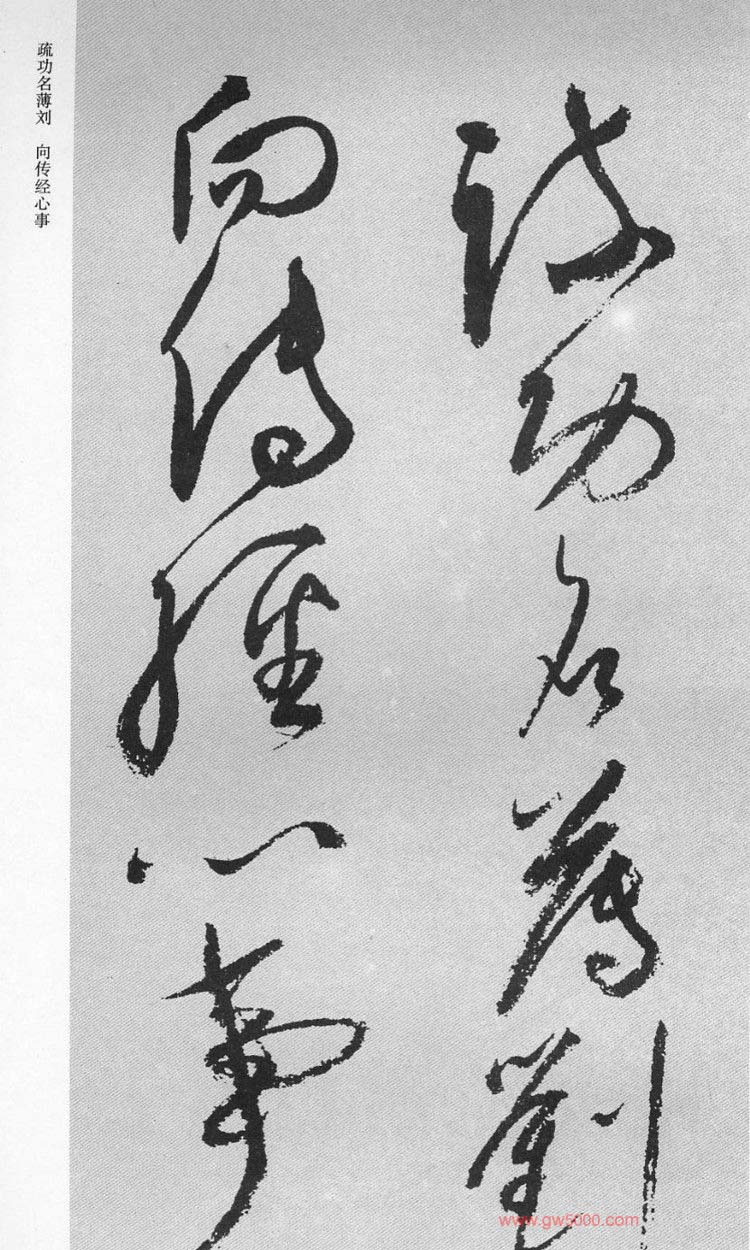 疏功名薄劉
向傳經心事
疏功名薄刘 向传经心事
www.gw5000.com